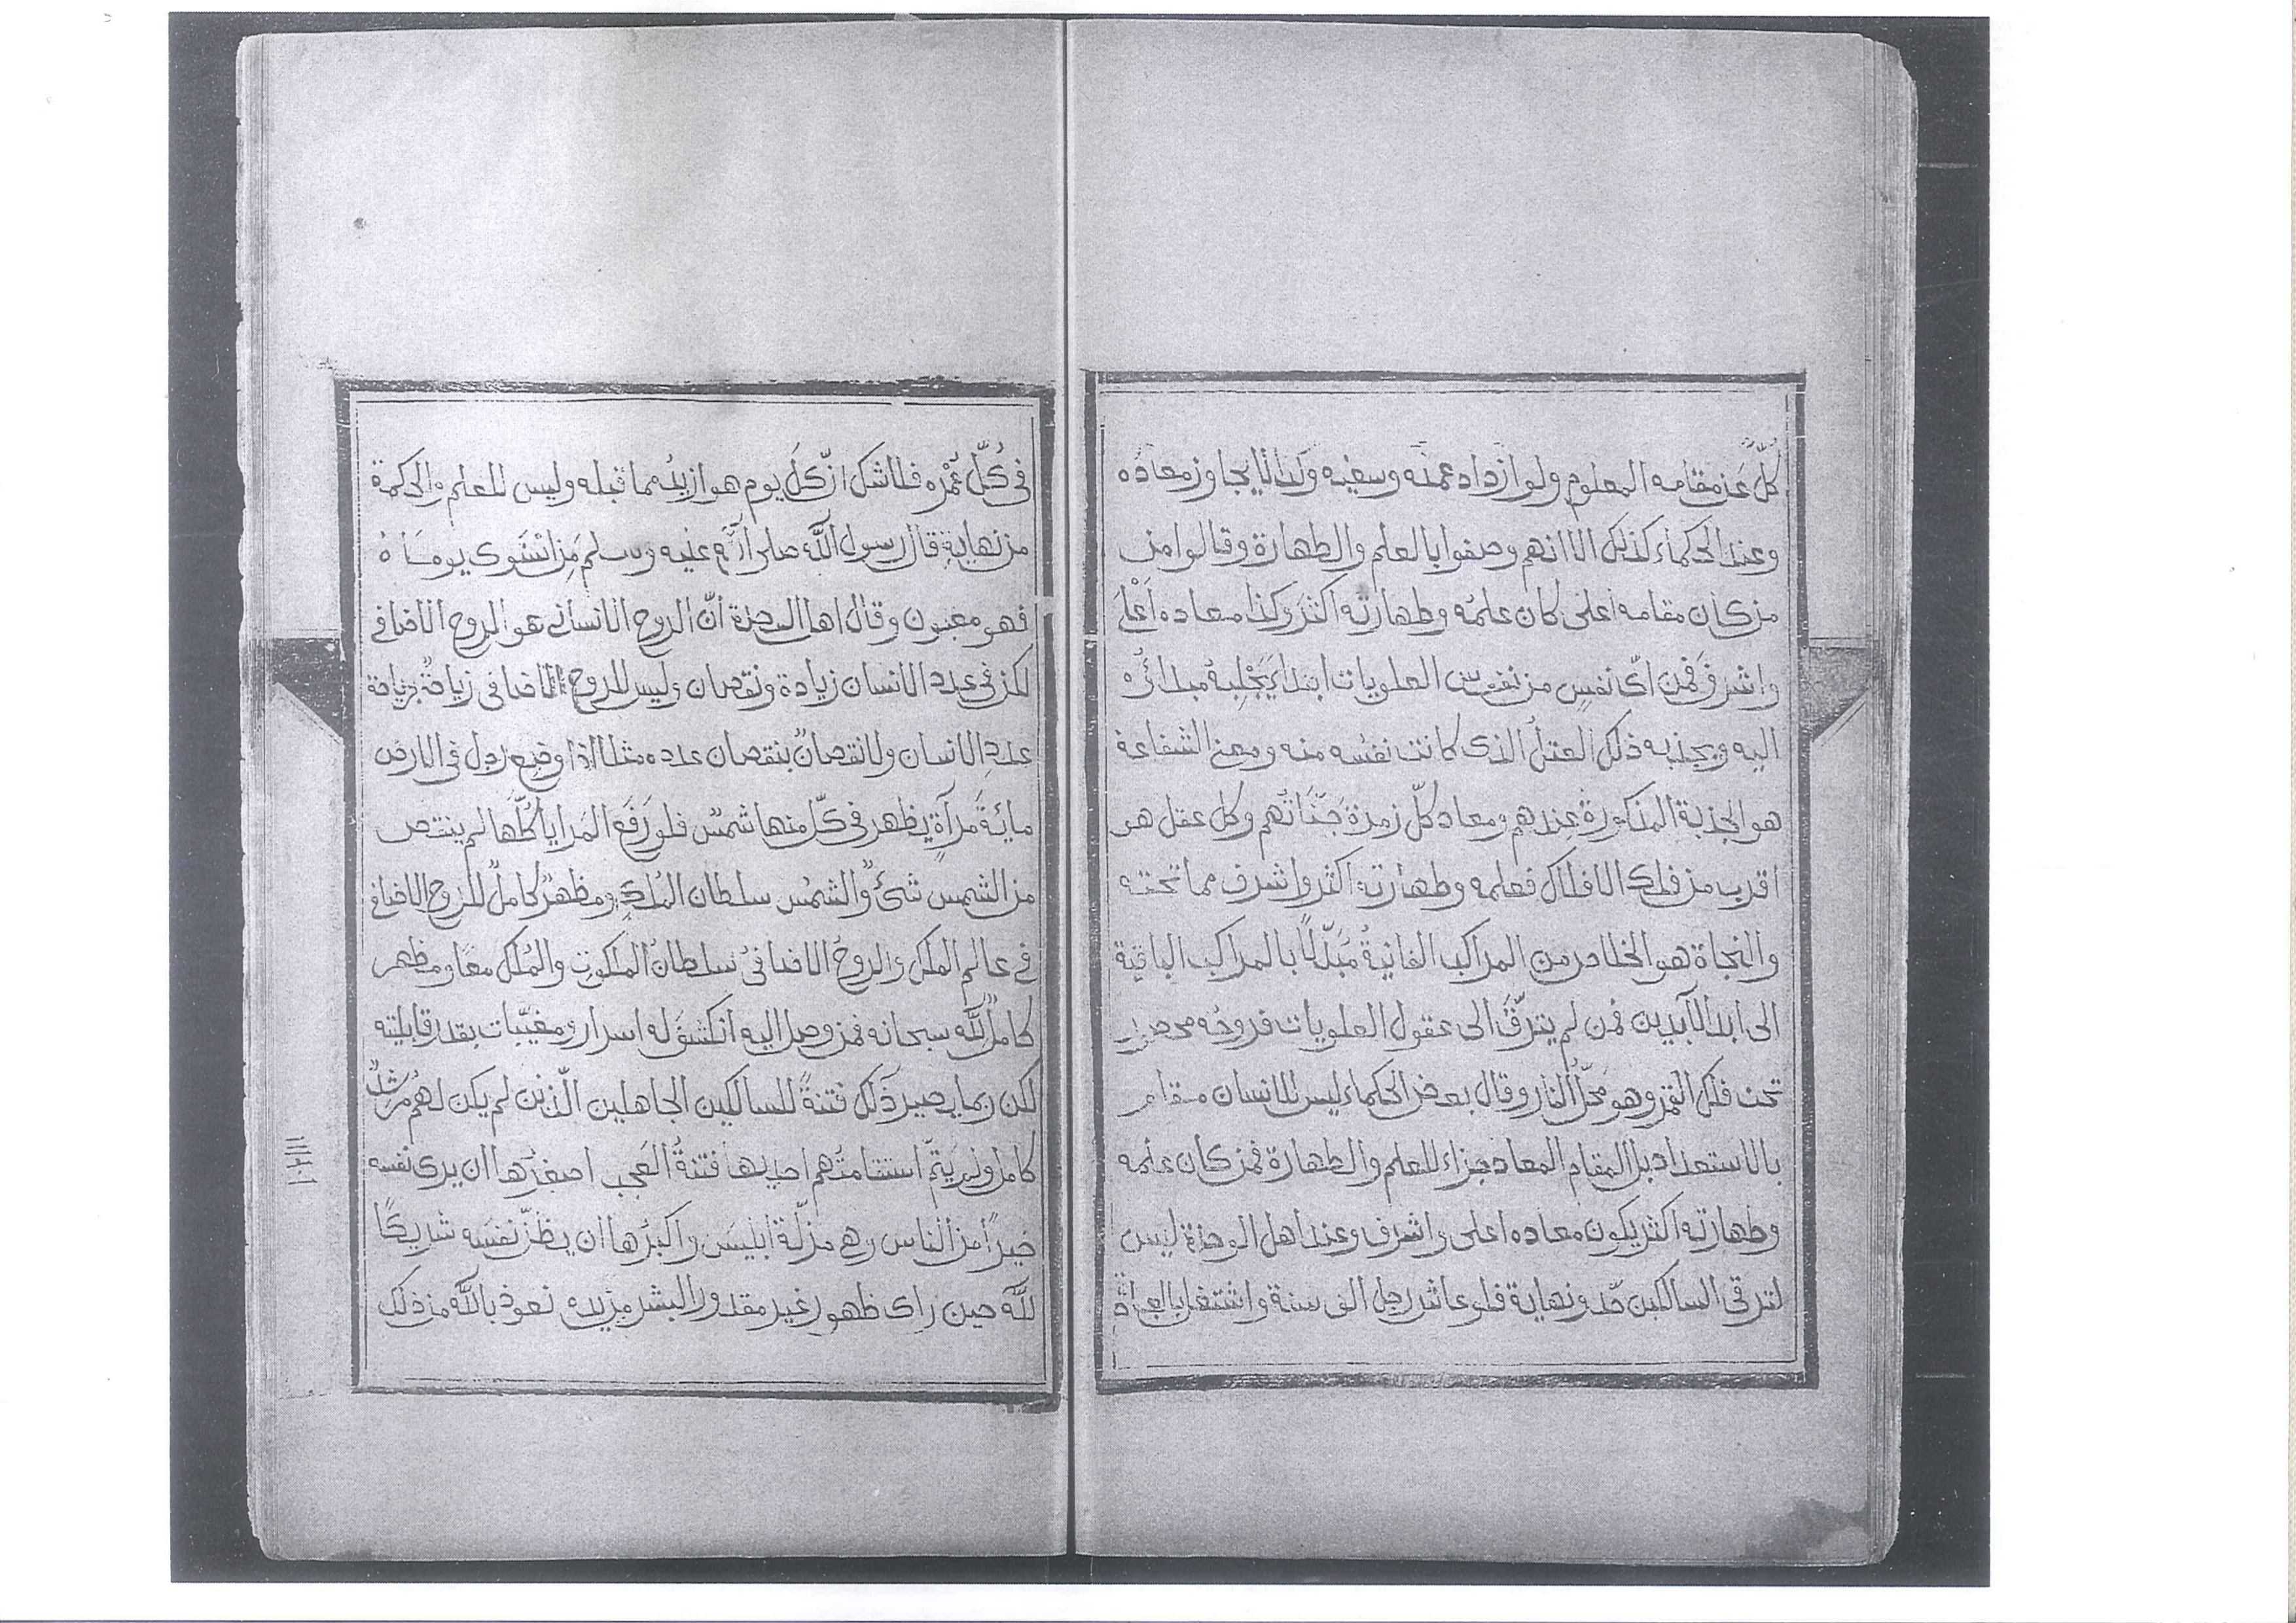 كلّ عن مقامه المعلوم ولو ازداد عمله وسعيه ولذا لا يجاوز معاده
وعند الحكماء كذلك الا انهم وصفوا بالعلم والطهارة وقالوا من
من كان مقامه اعلى كان علمه وطهارته اكثر وكذا معاده اَعْلَى
واشرف فمن اىّ نفسٍ من نفوس العلويات ابتداء يَجْلِبهُ مبدائُه
اليه ويجذبه ذلك العقلُ الذى كانت نفسه منه ومعنى الشفاعة
هو الجذبة المذكورة عندهم ومعاد كلّ زمرة جَنّاتهم وكل عقل هو
اقرب من فلك الافلاك فعلمه وطهارته اكثر واشرف مما تحته
والنجاة هو الخلاص من المراكب الفانية مُبَدّلاً بالمراكب الباقية
الى ابد الآبدين فمن لم يترقَّ الى عقول العلويات فروحُه
تحت فلك القمر وهو محلّ النار وقال بعض الحكماء ليس للانسان مقام
بالاستعداد بل المقام المعاد جزاء للعلم والطهارة فمن كان علمه
وطهارته اكثر يكون معاده اعلى واشرف وعند اهل الوحدة ليس
لترقى السالكين حدّ ونهاية فلو عاش رجل الف سنة واشتغل بالعبادة
فى كُلّ عُمْره فلا شك انّ كلَ يوم هو ازيدُ مما قبله وليس للعلم والحكمة
من نهاية قال رسول اللّٰه صلى اللّٰه عليه وسلم مَن اسْتَوى يوماهُ
فهو مغبون وقال اهل الوحدة انّ الروح الانسانى هو الروح الاضافى
لكن فى عدد الانسان زيادة ونقصان وليس للروح الاضافى زيادةٌ بزيادة
عددِ الانسان ولا نقصانٌ بنقصان عدده مثلا اذا وضع رجل فى الارض
مائةَ مرآةٍ يظهر فى كلّ منها شمسٌ فلو رَفَع المَرايا كُلّها لم ينتقص
من الشمس شئٌ والشمسُ سلطان المُلك ومظهرٌ كاملٌ للروح الاضافى
فى عالم الملك والروحُ الاضافىُ سلطانُ الملكوت والمُلك معًا ومظهر
كاملٌ للّٰه سبحانه فمن وصل اليه انكشفَ له اسرار ومغيّبات بقدر قابليته
لكن ربما يصير ذلك فتنةً للسالكين الجاهلين الّذين لم يكن لهُم مرشدٌ
كامل ولم يَتِمّ استقامتُهم احديها فتنةُ العجب اصغرها ان يرى نفسه
خيرًا من الناس وهى مزلّة ابليس واكبرُها ان يظنّ نفسَه شريكًا
للّٰه حين راى ظهور غير مقدور البشر من يده نعوذ باللّٰه من ذلك